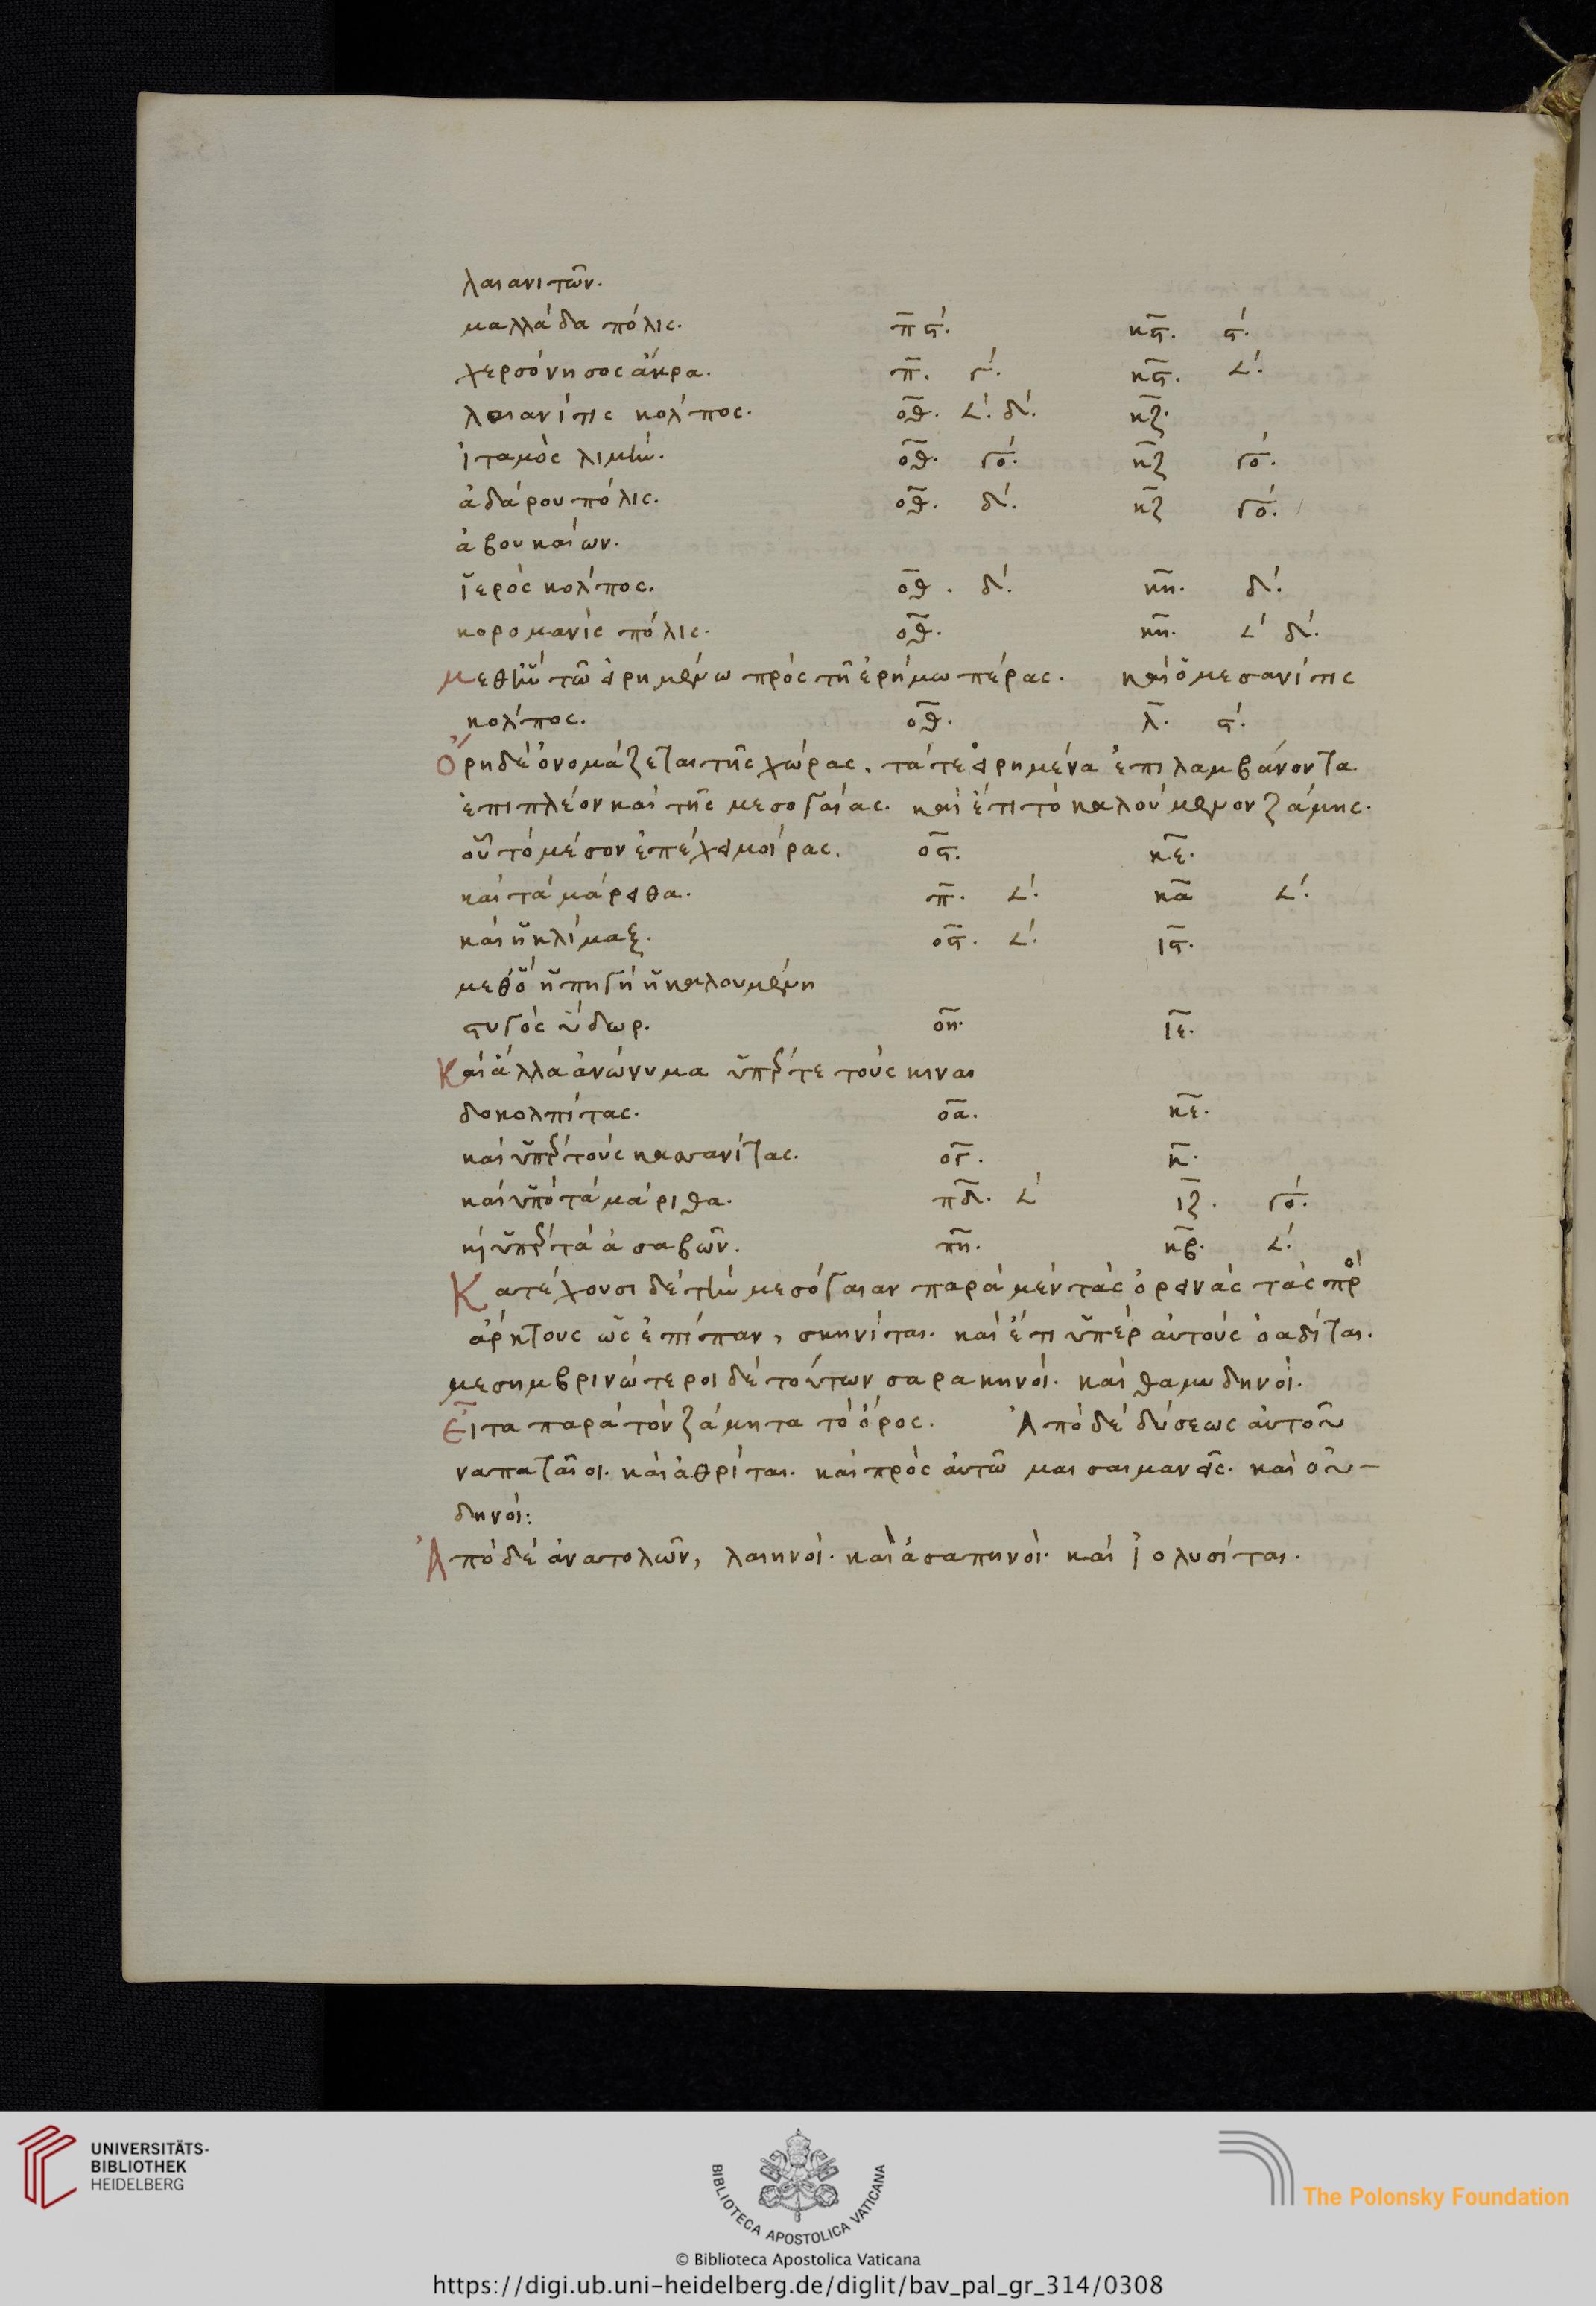 λαιανιτῶν.
μαλλάδα πόλις. π̅ ϛ́. κ̅ϛ̅. ϛ́.
χερσόνησος ἄκρα. π̅. γ́. κ̅ϛ̅. ∠́.
λαιανίτης κόλπος. ο̅θ̅. ∠́. δ́. κ̅ζ̅.
ἰταμὸς λιμὴν. ο̅θ̅. γό. κ̅ζ̅ γό.
ἀδάρου πόλις. ο̅θ̅. δ́. κ̅ζ̅ γό.
ἀβουκαίων.
ἱερὸς κόλπος. ο̅θ̅. δ́. κ̅η̅. δ́.
κορομανὶς πόλις. ο̅θ̅. κ̅η̅. ∠́ δ́.
μεθ ἣν τῶ εἰρημένω πρὸς τῆ ἐρήμω πέρας. καὶ ὁ μεσανίτης
κόλπος. ο̅θ̅. λ̅. ϛ́.
Ὄρη δὲ ὀνομάζεται τῆς χώρας. τά τε εἰρημένα ἐπιλαμβάνοντα
ἐπιπλέον καὶ τῆς μεσογαίας. καὶ ἔτι τὸ καλούμενον ζάμης.
οὗ τὸ μέσον ἐπέχει μοίρας. ο̅ϛ̅. κ̅ε̅.
καὶ τὰ μάρειθα. π̅. ∠́. κ̅α̅ ∠́.
καὶ ἡ κλίμαξ. ο̅ϛ̅. ∠́. ι̅ϛ̅.
μεθ ὃ ἡ πηγὴ ἡ καλουμένη
στυγὸς ὕδωρ. ο̅η̅. ι̅ε̅.
Καὶ ἄλλα ἀνώνυμα ὑπέρ τε τοὺς κιναι
δοκολπίτας. ο̅α̅. κ̅ε̅.
καὶ ὑπὲρ τοὺς κασανίτας. ο̅γ̅. κ̅.
καὶ ὑπὸ τὰ μάριθα. π̅δ̅. ∠́ ι̅ζ̅. γό.
κὶ ὑπὲρ τὰ ἀσαβῶν. π̅η̅. κ̅β̅. ∠́.
Κατέχουσι δὲ τὴν μεσόγαιαν παρὰ μὲν τὰς ὀρεινὰς τὰς πρὸ
ἄρκτους ὡς ἐπίπαν, σκηνίται. καὶ ἔτι ὑπὲρ αὐτοὺς ὀαδίται.
μεσημβρινώτεροι δὲ τούτων σαρακηνοὶ. καὶ θαμυδηνοὶ.
Εἶτα παρὰ τὸν ζάμητα τὸ ὄρος. Ἀπὸ δὲ δύσεως αὐτοῦ
ναπαταῖοι. καὶ ἀθρίται. καὶ πρὸς αὐτῶ μαισαιμανεῖς. καὶ οὐ-
δηνοὶ:
Ἀπὸ δὲ ἀνατολῶν, λαιηνοὶ. καὶ ἀσαπηνοὶ. καὶ ἰολυσίται.
UNIVERSITÄTS-
BIBLIOTHEK
HEIDELBERG
BIBLIOTECA APOSTOLICA VATICANA
The Polonsky Foundation
© Biblioteca Apostolica Vaticana
https://digi.ub.uni-heidelberg.de/diglit/bav_pal_gr_314/0308